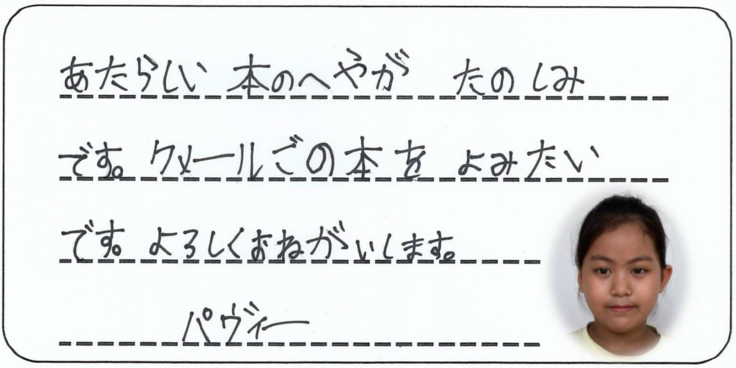 あたらしい 本のへやが たのしみ
です。クメールごの本を よみたい
です。よろしくおねがいします。
パヴィー